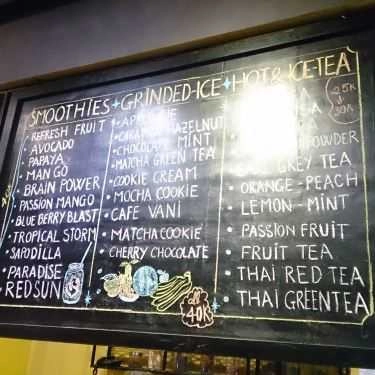 SMOOTHIES + GRINDED-ICE + HOT & ICE-TEA
• REFRESH FRUIT
• AVOCADO
• PAPAYA
• MAN GO
• BRAIN POWER
• PASSION MANGO
• BLUE BERRY BLAST
• TROPICAL STORM
• SAPODILLA
• PARADISE
• RED SUN
HAZELNUT
• CHOCOLATE MINT
• MATCHA GREEN TEA
• COOKIE CREAM
• MOCHA COOKIE
• CAFE VANI
• MATCHA COOKIE
• CHERRY CHOCOLATE
all
40K
25K
30K
POWDER
GREY TEA
• ORANGE - PEACH
• LEMON - MINT
• PASSION FRUIT
• FRUIT TEA
• THAI RED TEA
• THAI GREEN TEA